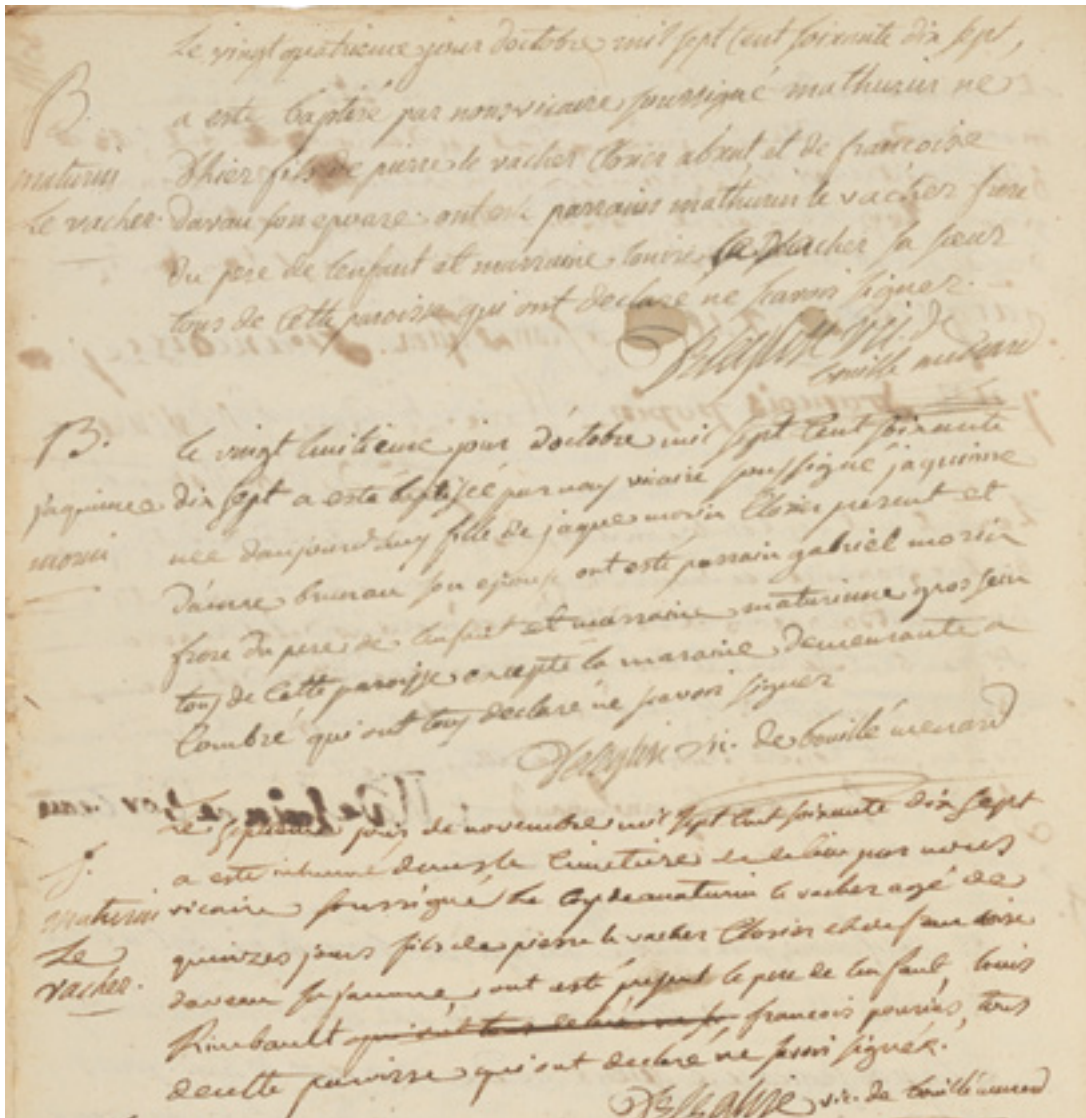 Le vingt quatrieme jour doctobre mil sept cent soixante dix sept,
B.
a esté baptisé par nous vicaire soussigné mathurin né
maturin
d'hier fils de pierre le vacher Closier absent et de francoise
Le vacher.
davau son epouse. ont esté parrains mathurin le vacher frere
du pere de lenfant et marraine louise le vacher sa soeur
tous de cette paroisse qui ont declaré ne scavoir signer.
vic. de
bouillé menard
B.
Le vingt huitieme jour doctobre mil sept cent soixante
jaquinne
dix sept a esté baptisée par nous vicaire soussigné jaquinne
morin
née daujourdhuy fille de jaque morin Closier present et
dainne bruneau son epouse ont esté parrain gabriel morin
frere du pere de lenfant et marraine maturinne grosbois
tous de cette paroisse excepté la maraine demeurante a
Combré qui ont tous declaré ne scavoir signer
vic. de bouillé menard
Le septieme jour de novembre mil sept cent soixante dix sept
S.
a esté inhumé dans le Cimetiere de ce lieu par nous
maturin
vicaire soussigné le corps de maturin le vacher agé de
Le
quinzes jours fils de pierre le vacher Closier et de francoise
vacher.
daveau sa famme, ont esté présent le pere de lenfant, louis
Rimbault francois pourias, tous
de cette paroisse qui ont declaré ne scavoir signér.
vic. de bouillé menard